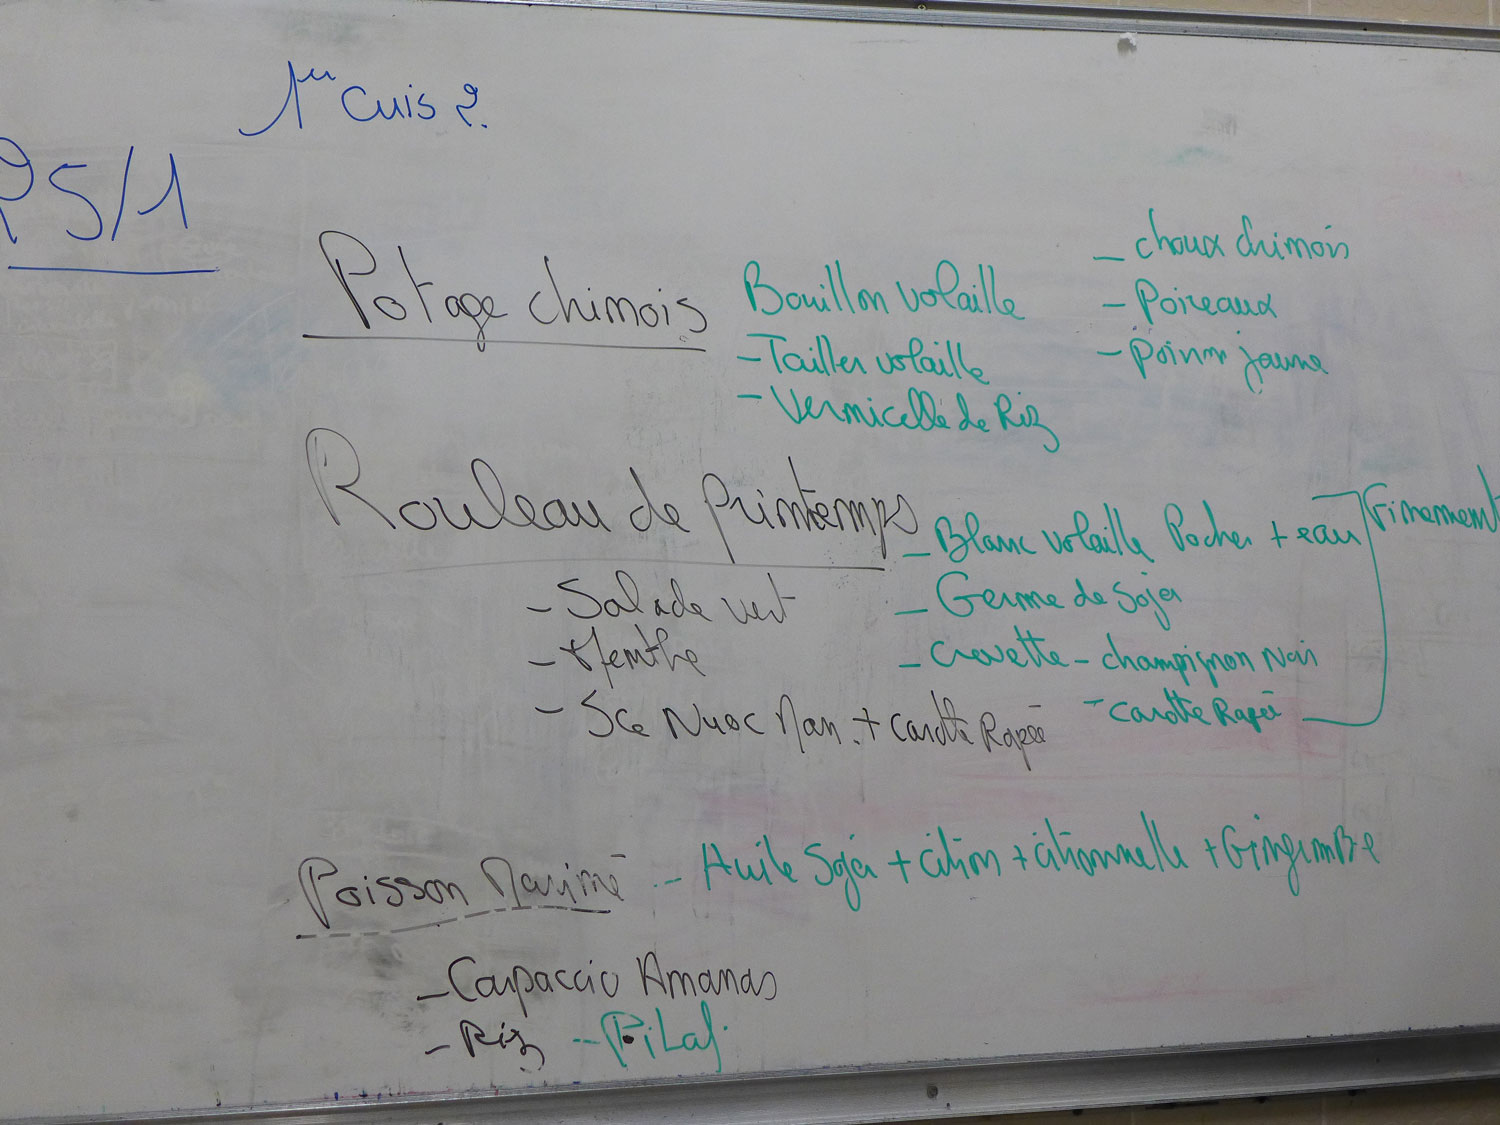 1er Cuis 2.
P5/1
Potage chinois
Bouillon volaille
- Tailler volaille
- Vermicelle de Riz
- choux chinois
- Poireaux
- Poivron jaune
Rouleau de printemps
- Salade vert
- Menthe
- Sce Nuoc Nam + carotte Rapée
- Blanc volaille Pocher + eau
- Germe de Soja
- Crevette - champignon Noir
- carotte Rapée
Finement
Poisson Mariné - Huile Soja + citron + citronnelle + Gingembre
- Carpaccio Ananas
- Riz - Pilaf.